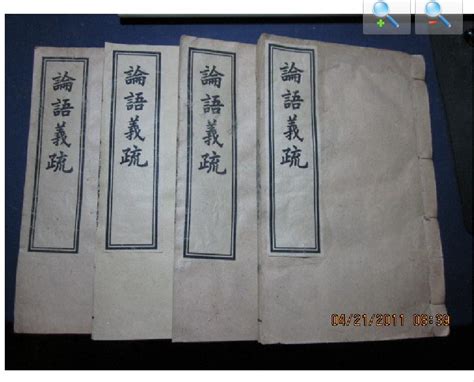 論語義疏
論語義疏
論語義疏
論語義疏
04/21/2011